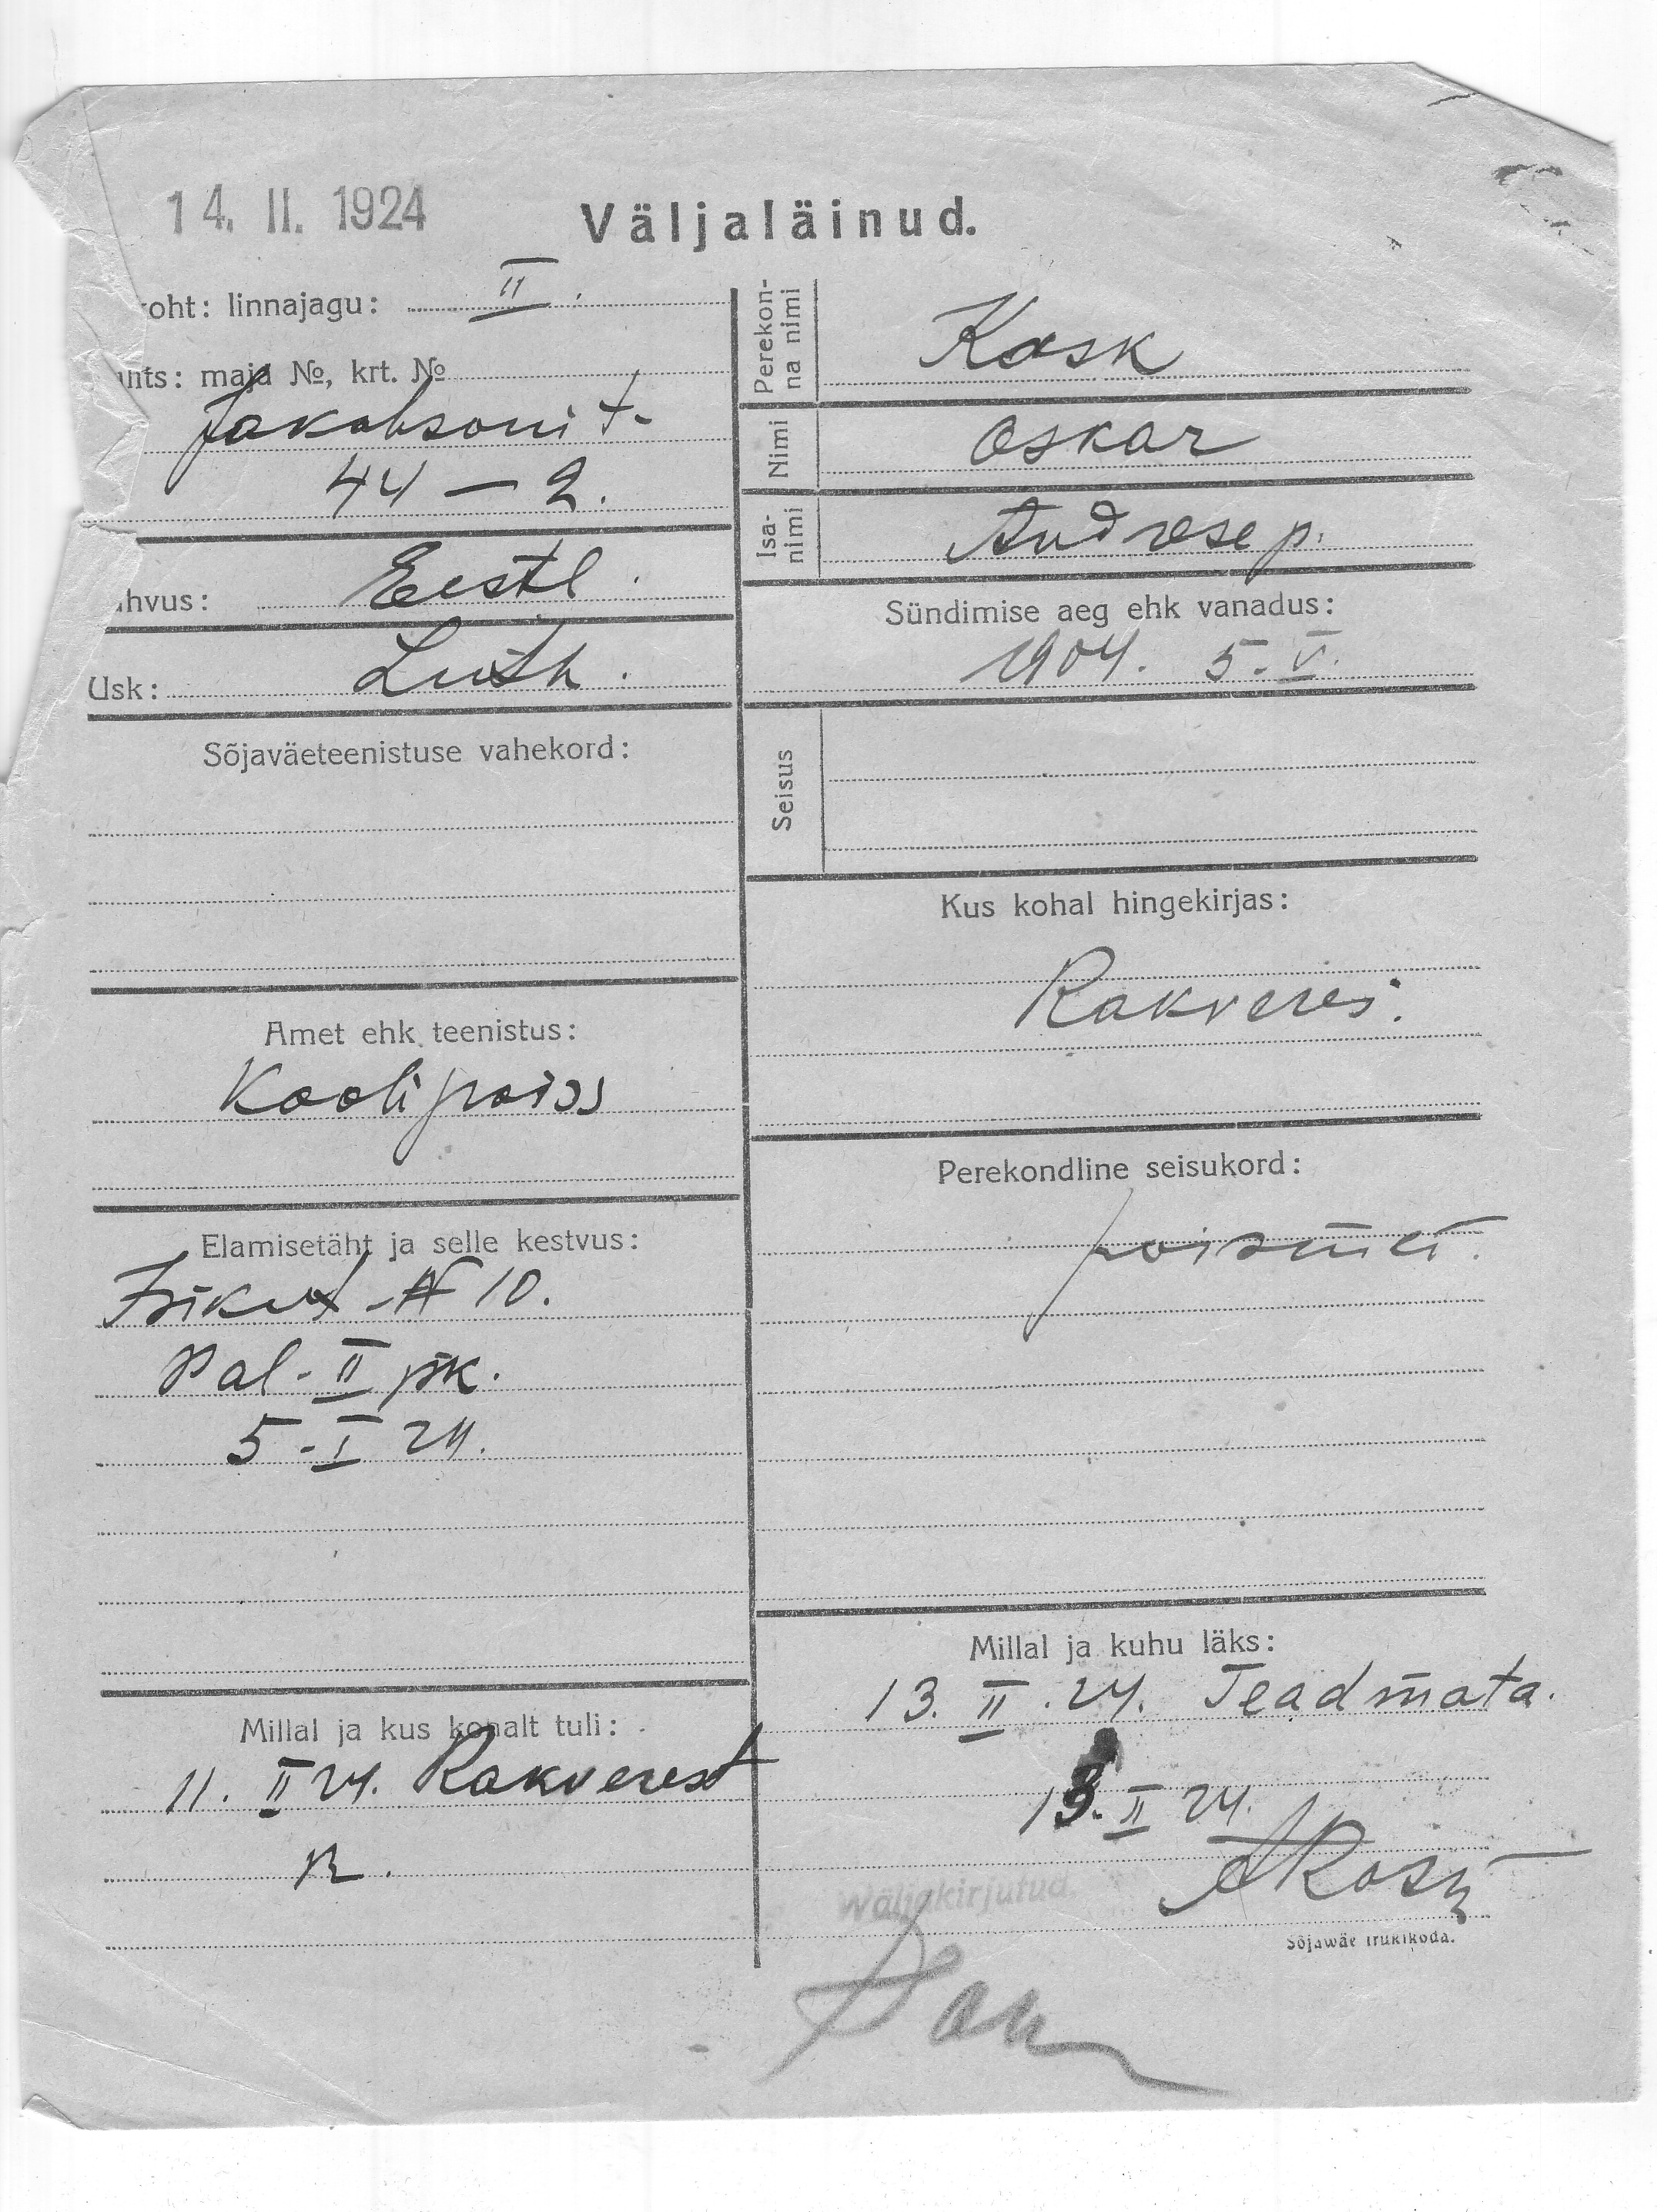 14. II. 1924
Väljaläinud.
koht: linnajagu: II.
ulits: maja №, krt. №
Jakobsoni t-
44 — 2.
ahvus: Eestl.
Usk: Luth.
Sõjaväeteenistuse vahekord:
Amet ehk teenistus:
Koolipoiss
Elamisetäht ja selle kestvus:
Isikut - № 10.
Pal - II jsk.
5 - I 24.
Millal ja kus kohalt tuli:
11. II 24. Rakverest
R.
Perekon-
na nimi
Kask
Nimi
Oskar
Isa-
nimi
Andrese p.
Sündimise aeg ehk vanadus:
1904. 5. V.
Seisus
Kus kohal hingekirjas:
Rakveres.
Perekondline seisukord:
poismees.
Millal ja kuhu läks:
13. II. 24. Teadmata.
13. II 24.
Wäljakirjutud.
Sõjawäe trükikoda.